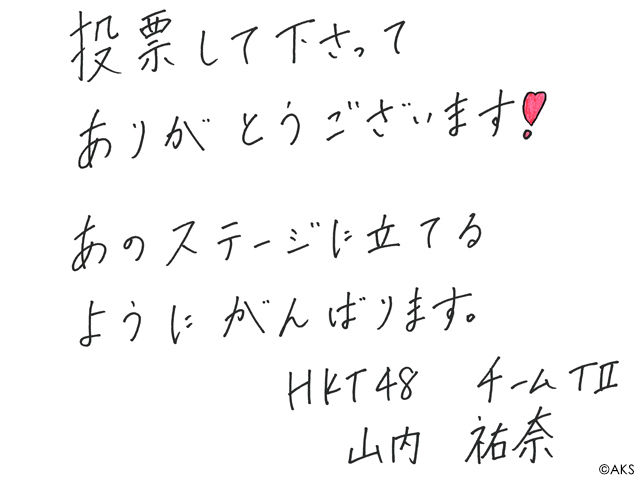 投票して下さって
ありがとうございます!
あのステージに立てる
ようにがんばります。
HKT48 チームTⅡ
山内 祐奈
©AKS